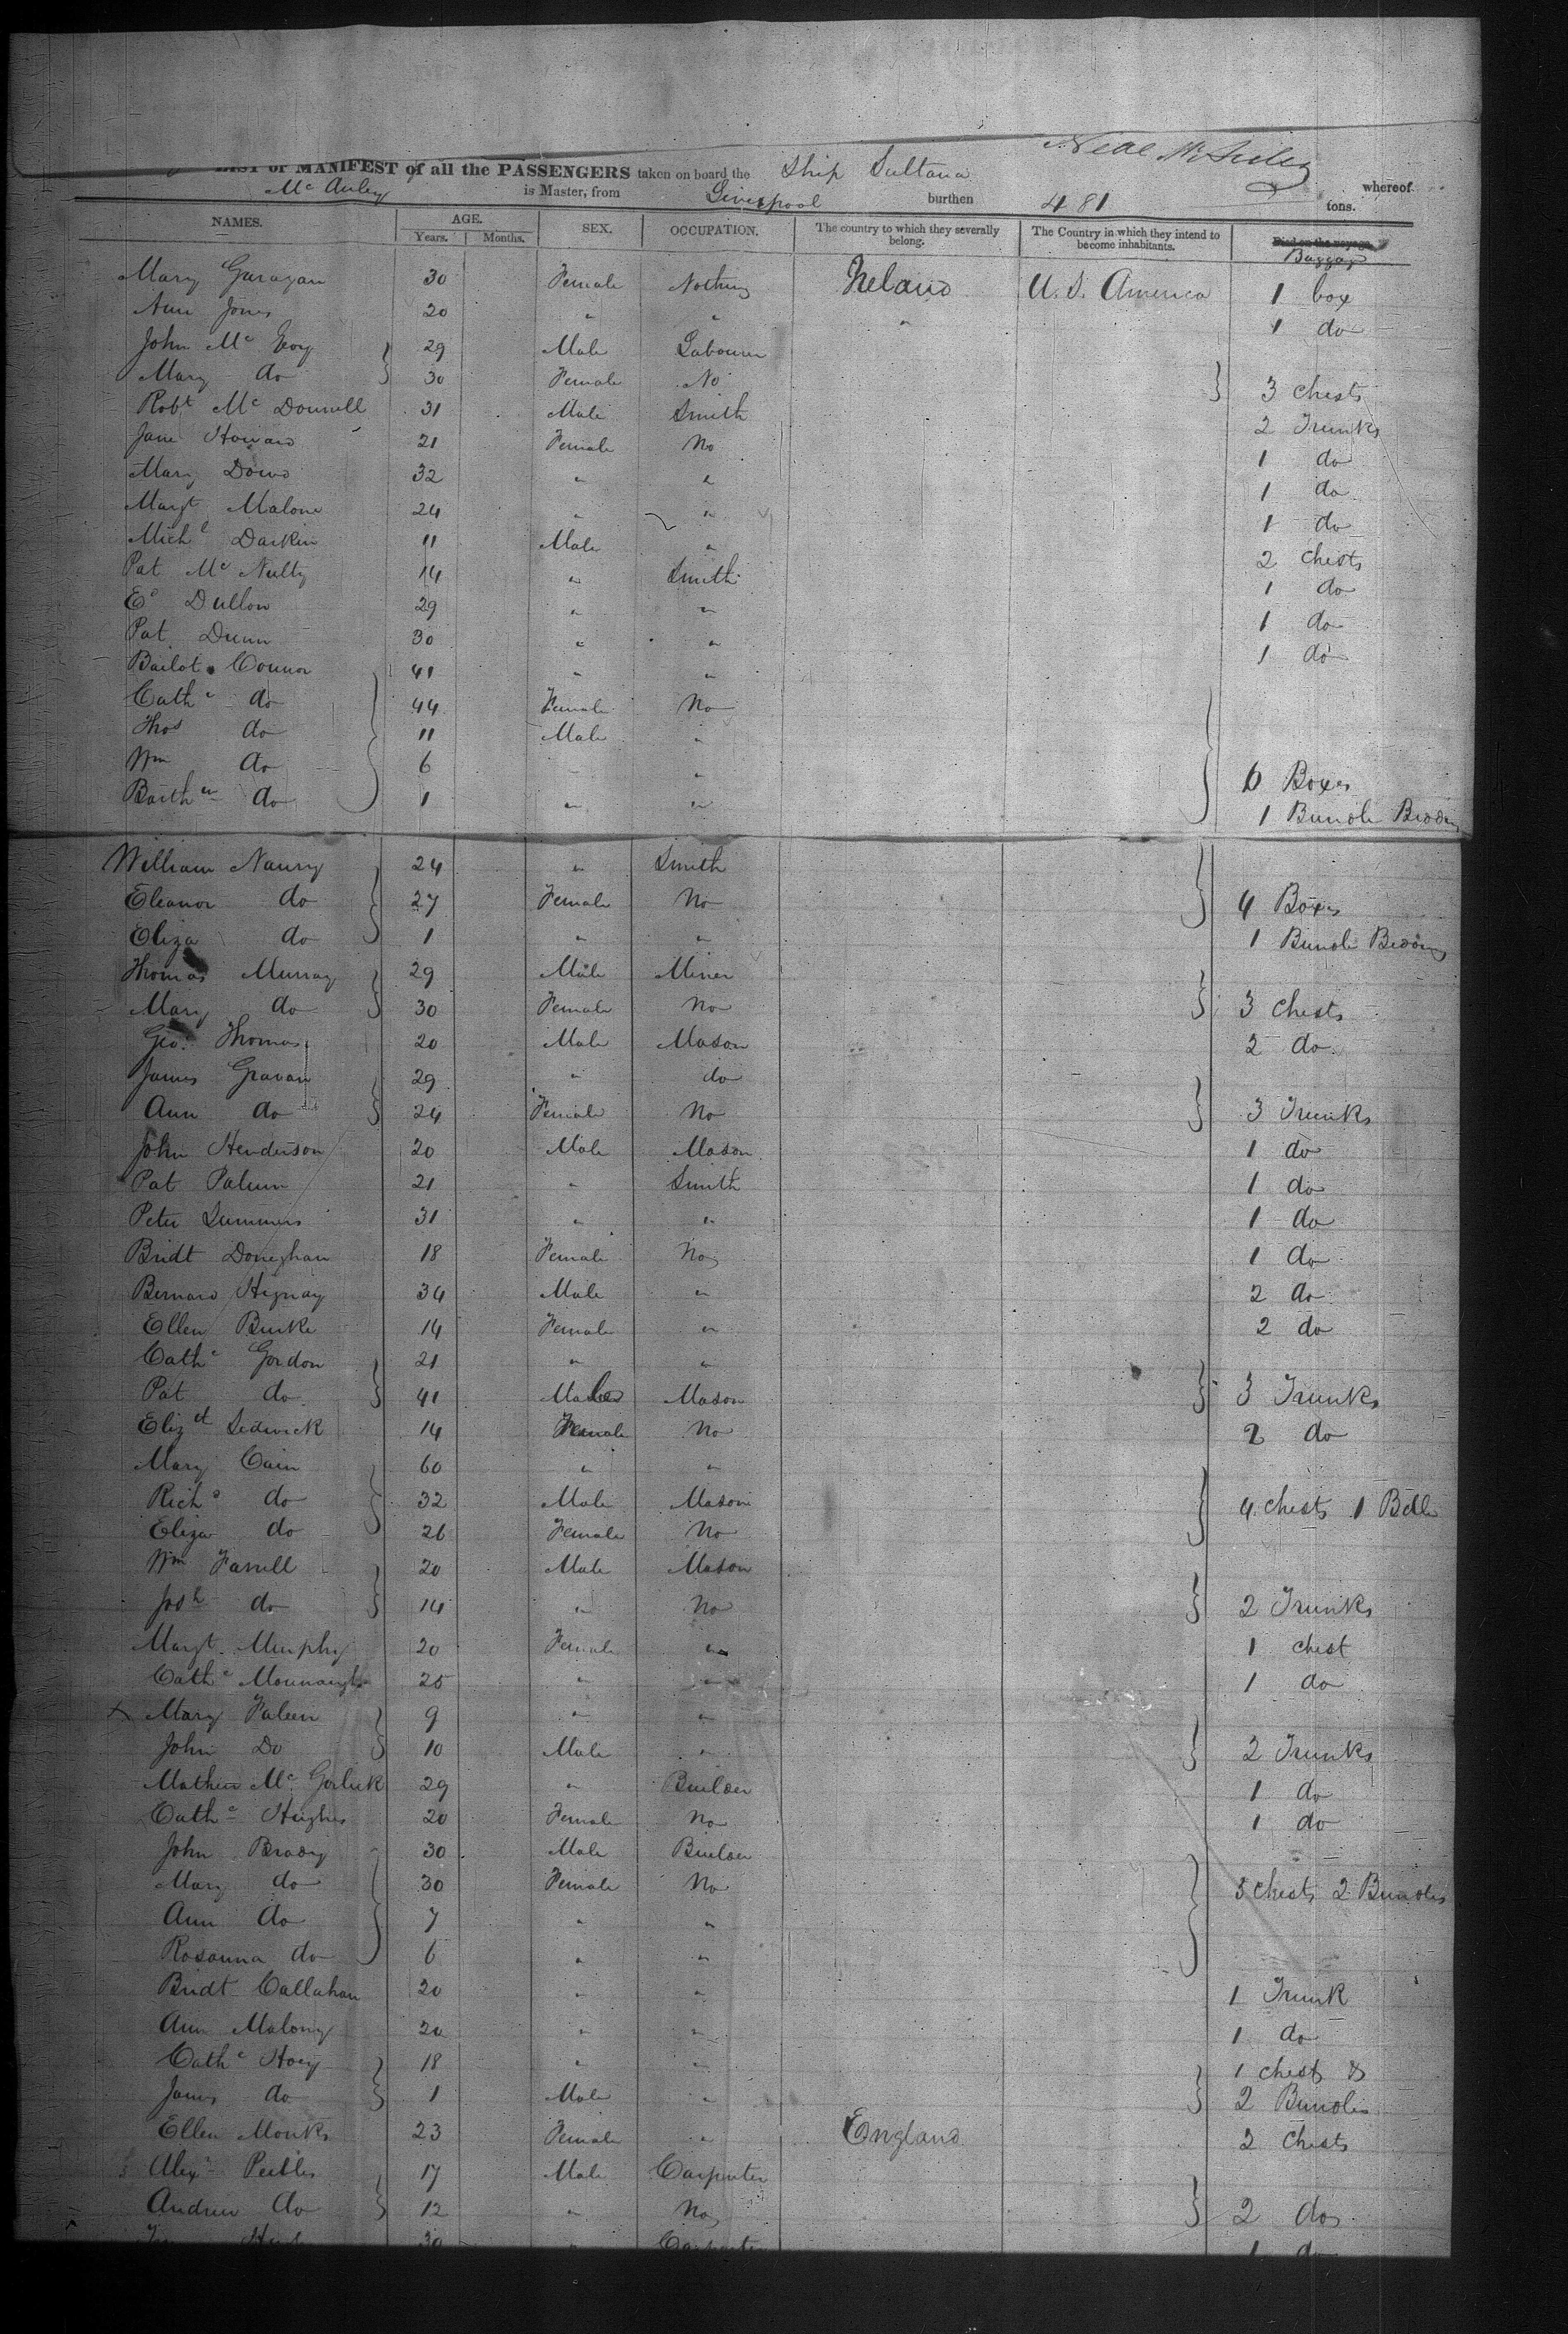 LIST or MANIFEST of all the PASSENGERS taken on board the Ship Sultana Neal McAuley whereof
McAuley is Master, from Liverpool burthen 481 tons.
NAMES. AGE. SEX. OCCUPATION. The country to which they severally belong. The Country in which they intend to become inhabitants. Died on the voyage. Baggage
Years. Months.
Mary Garagan 30 Female Nothing Ireland U. S. America 1 box
Ann Jones 20 " " " 1 do
John Mc Evoy 29 Male Labourer
Mary do 30 Female No 3 chests
Robt Mc Donnell 31 Male Smith 2 Trunks
Jane Howard 21 Female No 1 do
Mary Dowd 32 " " 1 do
Margt Malone 24 " " 1 do
Michl Darkin 11 Male " 2 chests
Pat Mc Nulty 14 " Smith 1 do
Ed Dullon 29 " " 1 do
Pat Dunn 30 " " 1 do
Connor 41 " "
Cathe do 44 Female No
Thos do 11 Male "
Wm do 6 "
Barthw do 1 " " 6 Boxes
1 Bundle Bedding
William Naury 24 " Smith
Eleanor do 27 Female No 4 Boxes
Eliza do 1 " " 1 Bundle Bedding
Thomas Murray 29 Male Miner
Mary do 30 Female No 3 chests
Geo. Thomas 20 Male Mason 2 do
James Gravan 29 " do
Ann do 24 Female No 3 Trunks
John Henderson 20 Male Mason 1 do
Pat 21 " Smith 1 do
Peter Summers 31 " " 1 do
Bridt Doneghan 18 Female No 1 do
Bernard 34 Male " 2 do
Ellen Burke 14 Female " 2 do
Cathe Gordon 21 " "
Pat do 41 Male Mason 3 Trunks
Elizth Sedwick 14 Female No 2 do
Mary Cain 60 " "
Richd do 32 Male Mason 4 chests 1 Bdle
Eliza do 26 Female No
Wm Farrell 20 Male Mason
Josh do 14 " No 2 Trunks
Margt Murphy 20 Female " 1 chest
Cathe 25 " " 1 do
x Mary Faleen 9 " "
John Do 10 Male " 2 Trunks
Mathew Mc Gorlick 29 " Builder 1 do
Cathe Hughes 20 Female No 1 do
John Brady 30 Male Builder
Mary do 30 Female No 3 chests 2 Bundles
Ann do 7 " "
Rosanna do 6 " "
Bridt Callahan 20 " " 1 Trunk
Ann Malony 20 " " 1 do
Cathe Hoey 18 " " 1 chest &
James do 1 Male " 2 Bundles
Ellen Monks 23 Female " England 2 chests
Alexr Peebles 17 Male Carpenter
Andrew do 12 " No 2 do
30 " Carpenter 1 do